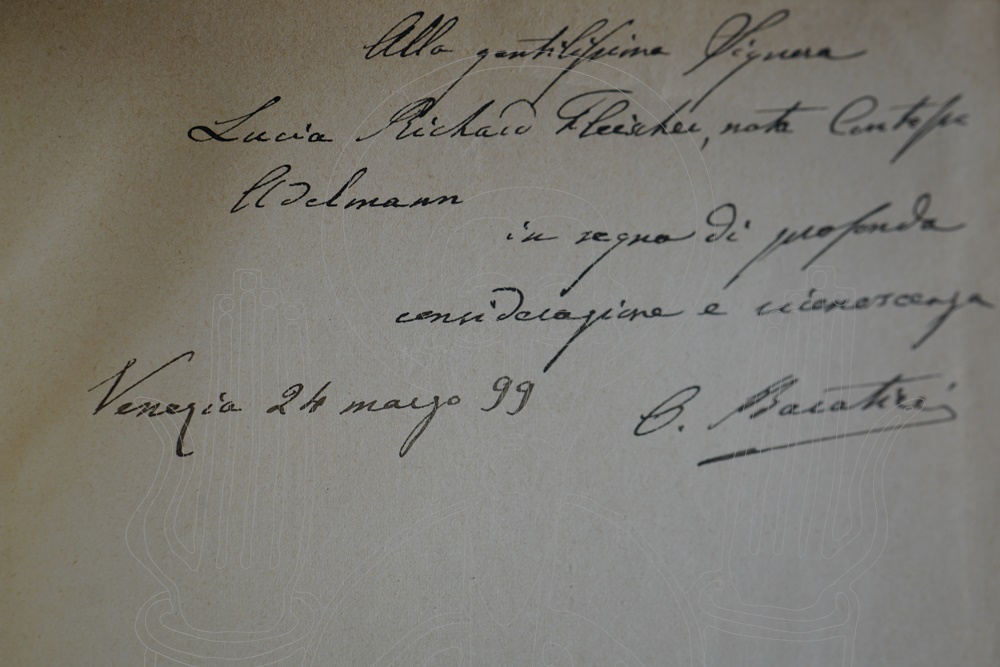 Alla gentilissima Signora
Lucia Richard Fleischer, nata Contessa
Adelmann
in segno di profonda
considerazione e riconoscenza
Venezia 24 marzo 99
C. Baratiri